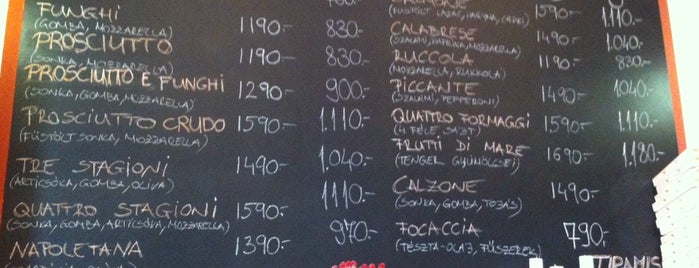 FUNGHI 1190.-
(GOMBA, MOZZARELLA) 830.-
PROSCIUTTO 1190.-
(SONKA, MOZZARELLA) 830.-
PROSCIUTTO E FUNGHI 1290.- 900.-
(SONKA, GOMBA, MOZZARELLA)
PROSCIUTTO CRUDO 1590.- 1.110.-
(FÜSTÖLT SONKA, MOZZARELLA)
TRE STAGIONI 1490.- 1.040.-
(ARTICSÓKA, GOMBA, OLIVA)
QUATTRO STAGIONI 1590.- 1110.-
(SONKA, GOMBA, ARTICSÓKA, MOZZARELLA)
NAPOLETANA 1390.- 970.-
1590.- 1.110.-
CALABRESE 1490.- 1.040.-
(SZALÁMI, PAPRIKA, MOZZARELLA)
RUCCOLA 1190.- 830.-
(MOZZARELLA, RUKKOLA)
PICCANTE 1490.- 1.040.-
(SZALÁMI, PEPFERONI)
QUATTRO FORMAGGI 1590.- 1.110.-
(4 FÉLE SAJT)
FRUTTI DI MARE 1690.- 1.180.-
(TENGER GYÜMÖLCSEI)
CALZONE 1490.-
(SONKA, GOMBA, TOJÁS)
FOCACCIA 790.-
(TÉSZTA-OLAJ, FŰSZEREK)
TIRAMIS